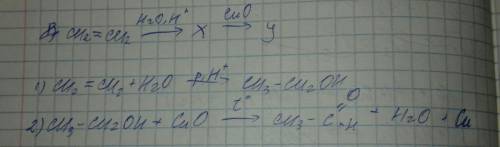 в) CH2=CH2 H2O,H+ → X CuO → Y
1) CH2=CH2 + H2O H+ → CH3-CH2OH
2) CH3-CH2OH + CuO t° → CH3-C=O-H + H2O + Cu